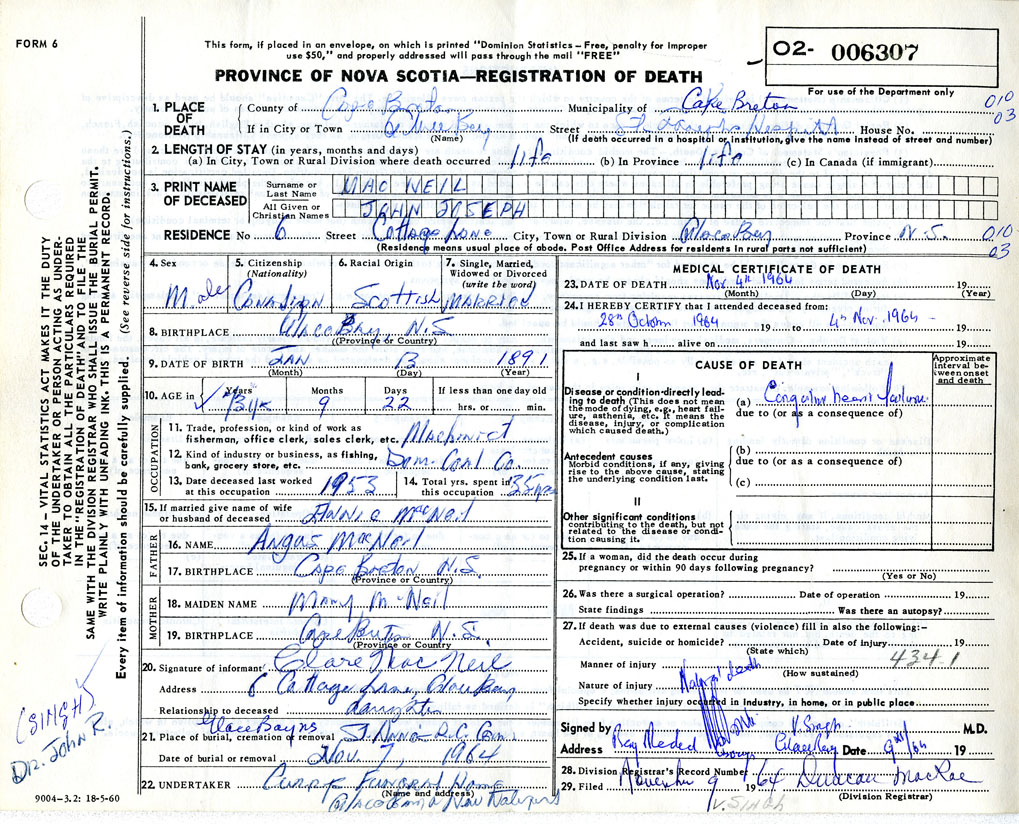 FORM 6
This form, if placed in an envelope, on which is printed "Dominion Statistics – Free, penalty for improper
use $50," and properly addressed will pass through the mail "FREE"
PROVINCE OF NOVA SCOTIA—REGISTRATION OF DEATH
02- 006307
For use of the Department only
010
03
1. PLACE OF DEATH
County of Cape Breton Municipality of Cape Breton
If in City or Town Glace Bay Street St. Joseph's Hospital House No.
(Name) (If death occurred in a hospital or institution, give the name instead of street and number)
2. LENGTH OF STAY (in years, months and days)
(a) In City, Town or Rural Division where death occurred life (b) In Province life (c) In Canada (if immigrant)
3. PRINT NAME OF DECEASED
Surname or Last Name MAC NEIL
All Given or Christian Names JOHN JOSEPH
RESIDENCE No 6 Street Cottage Lane City, Town or Rural Division Glace Bay Province N.S.
010
03
(Residence means usual place of abode. Post Office Address for residents in rural parts not sufficient)
4. Sex Male
5. Citizenship (Nationality) Canadian
6. Racial Origin Scottish
7. Single, Married, Widowed or Divorced (write the word) MARRIED
8. BIRTHPLACE Glace Bay N.S.
(Province or Country)
9. DATE OF BIRTH JAN 13 1891
(Month) (Day) (Year)
10. AGE in Years Months 9 Days 22 If less than one day old hrs. or min.
OCCUPATION
11. Trade, profession, or kind of work as fisherman, office clerk, sales clerk, etc. Machinist
12. Kind of industry or business, as fishing, bank, grocery store, etc. Dom. Coal Co.
13. Date deceased last worked at this occupation 1953
14. Total yrs. spent in this occupation 35 yrs
15. If married give name of wife or husband of deceased Annie MacNeil
FATHER
16. NAME Angus MacNeil
17. BIRTHPLACE Cape Breton N.S.
(Province or Country)
MOTHER
18. MAIDEN NAME Mary McNeil
19. BIRTHPLACE Cape Breton N.S.
(Province or Country)
20. Signature of informant Clare MacNeil
Address 6 Cottage Lane, Glace Bay
Relationship to deceased daughter
Glace Bay NS
21. Place of burial, cremation or removal St Anns R.C. Cem
Date of burial or removal Nov. 7, 1964
22. UNDERTAKER Curry Funeral Home
(Name and address)
Glace Bay New Waterford
9004-3.2: 18-5-60
MEDICAL CERTIFICATE OF DEATH
23. DATE OF DEATH Nov. 4th 1964 19
(Month) (Day) (Year)
24. I HEREBY CERTIFY that I attended deceased from:
28th October 1964 19 to 4th Nov. 1964 - 19
and last saw h alive on 19
CAUSE OF DEATH
Approximate interval between onset and death
I
Disease or condition directly leading to death (This does not mean the mode of dying, e.g., heart failure, asthenia, etc. It means the disease, injury, or complication which caused death.)
(a) Congestive heart failure
due to (or as a consequence of)
Antecedent causes
Morbid conditions, if any, giving rise to the above cause, stating the underlying condition last.
(b)
due to (or as a consequence of)
(c)
II
Other significant conditions contributing to the death, but not related to the disease or condition causing it.
25. If a woman, did the death occur during pregnancy or within 90 days following pregnancy?
(Yes or No)
26. Was there a surgical operation? Date of operation 19
State findings Was there an autopsy?
27. If death was due to external causes (violence) fill in also the following:-
Accident, suicide or homicide? Date of injury 19
(State which)
434-1
Manner of injury
(How sustained)
Natural death
Nature of injury
Specify whether injury occurred in Industry, in home, or in public place
Signed by V. Singh M.D.
Address Glace Bay Date 9 XI/64 19
28. Division Registrar's Record Number
29. Filed November 9 1964 Duncan MacRae
(Division Registrar)
V. SINGH
SEC. 14 – VITAL STATISTICS ACT MAKES IT THE DUTY
OF THE UNDERTAKER OR PERSON ACTING AS UNDER-
TAKER TO OBTAIN ALL THE PARTICULARS REQUIRED
IN THE "REGISTRATION OF DEATH" AND TO FILE THE
SAME WITH THE DIVISION REGISTRAR WHO SHALL ISSUE THE BURIAL PERMIT.
WRITE PLAINLY WITH UNFADING INK. THIS IS A PERMANENT RECORD.
Every item of information should be carefully supplied. (See reverse side for instructions.)
(SINGH)
Dr. John R.